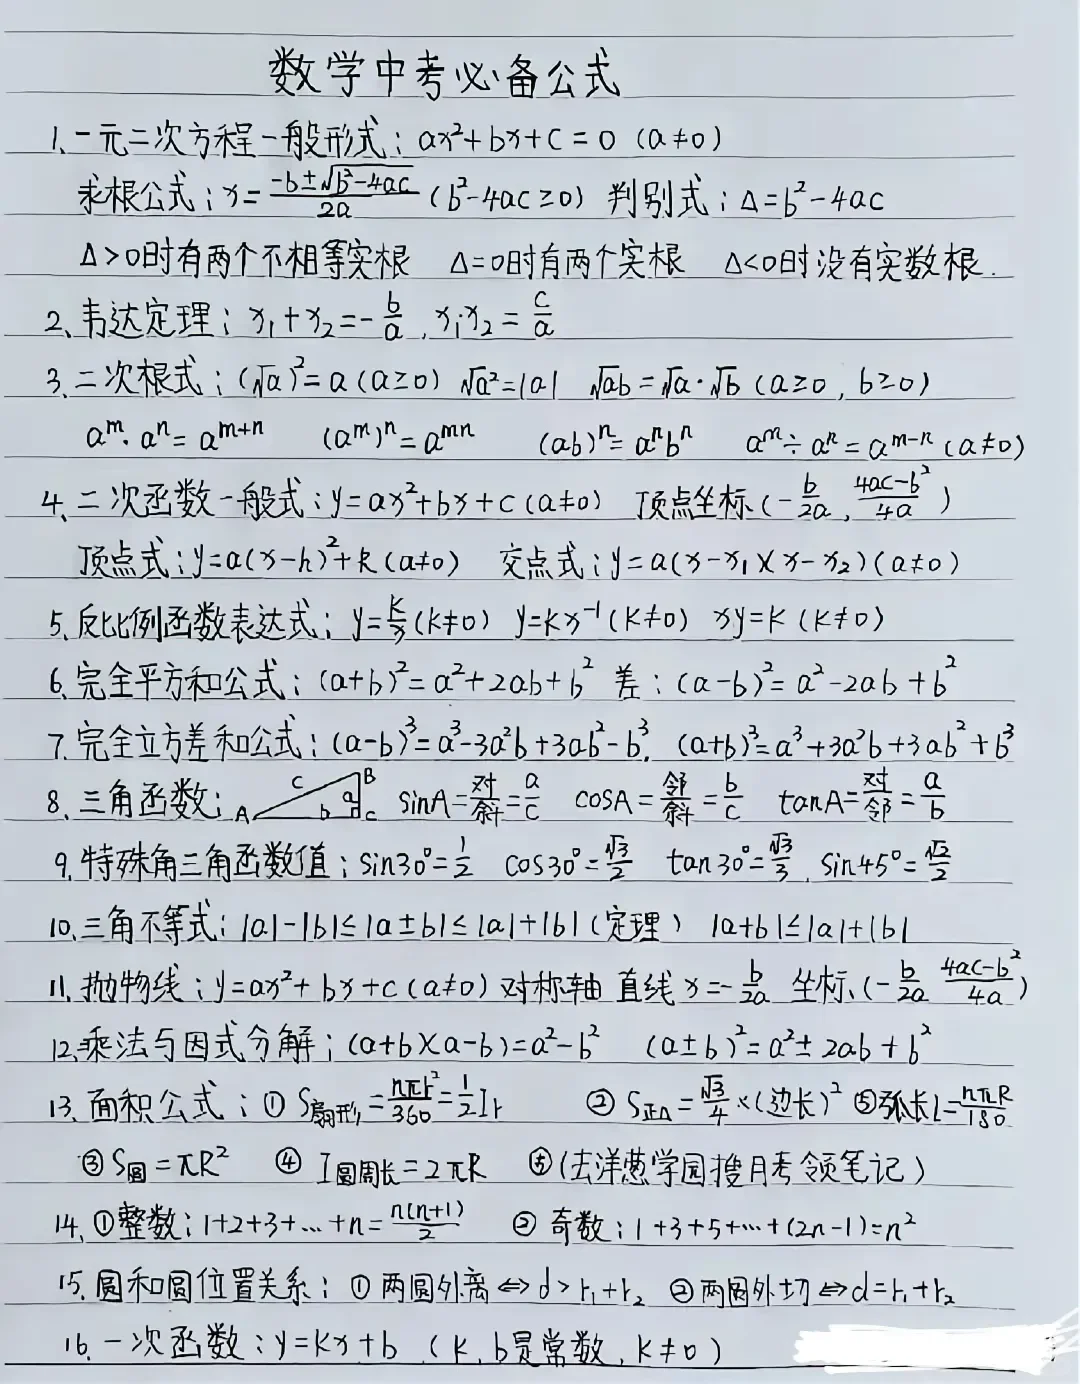 数学中考必备公式
1、一元二次方程一般形式：ax²+bx+c=0 (a≠0)
求根公式：x=(-b±√(b²-4ac))/2a (b²-4ac≥0) 判别式：Δ=b²-4ac
Δ>0时有两个不相等实根 Δ=0时有两个实根 Δ<0时没有实数根.
2、韦达定理：x₁+x₂=-b/a, x₁x₂=c/a
3、二次根式：(√a)²=a(a≥0) √a²=|a| √ab=√a·√b (a≥0, b≥0)
aᵐ·aⁿ=aᵐ⁺ⁿ (aᵐ)ⁿ=aᵐⁿ (ab)ⁿ=aⁿbⁿ aᵐ÷aⁿ=aᵐ⁻ⁿ (a≠0)
4、二次函数一般式：y=ax²+bx+c(a≠0) 顶点坐标(-b/2a, (4ac-b²)/4a)
顶点式：y=a(x-h)²+k(a≠0) 交点式：y=a(x-x₁)(x-x₂)(a≠0)
5、反比例函数表达式：y=k/x(k≠0) y=kx⁻¹(k≠0) xy=k(k≠0)
6、完全平方和公式：(a+b)²=a²+2ab+b² 差：(a-b)²=a²-2ab+b²
7、完全立方差和公式：(a-b)³=a³-3a²b+3ab²-b³. (a+b)³=a³+3a²b+3ab²+b³
8、三角函数：A c B b a c sinA=对/斜=a/c cosA=邻/斜=b/c tanA=对/邻=a/b
9、特殊角三角函数值：sin30°=1/2 cos30°=√3/2 tan30°=√3/3, sin45°=√2/2
10、三角不等式：|a|-|b|≤|a±b|≤|a|+|b|(定理) |a+b|≤|a|+|b|
11、抛物线：y=ax²+bx+c(a≠0)对称轴 直线x=-b/2a 坐标、(-b/2a (4ac-b²)/4a)
12、乘法与因式分解：(a+b)(a-b)=a²-b² (a±b)²=a²±2ab+b²
13、面积公式：①S扇形=nπr²/360=1/2lr ②S正Δ=√3/4×(边长)² ⑤弧长l=nπR/180
③S圆=πR² ④l圆周长=2πR ⑤(去洋葱学园搜月考领笔记)
14、①整数：1+2+3+…+n=n(n+1)/2 ②奇数：1+3+5+…+(2n-1)=n²
15、圆和圆位置关系：①两圆外离⇔d>r₁+r₂ ②两圆外切⇔d=r₁+r₂
16、一次函数：y=kx+b (k,b是常数,k≠0)